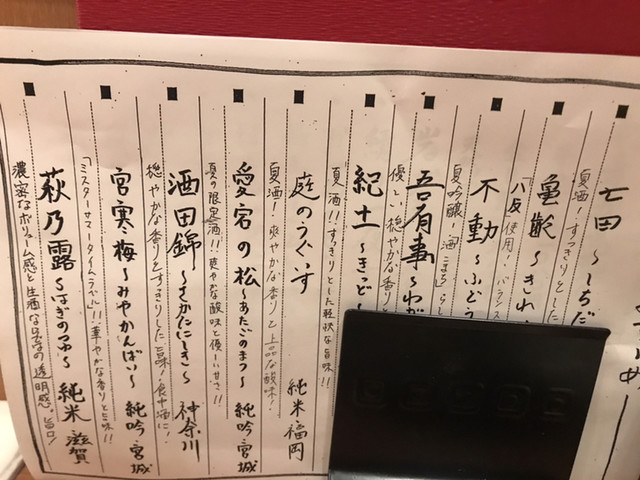 七田 〜しちだ
夏酒！すっきりとした
亀齢 〜きれい
「八反」使用！バランス
不動 〜ふどう
夏吟醸！酒こまちらし
吾有事 〜わが
優しい穏やかな香りと
紀土 〜きっど〜
夏酒！！すっきりとした軽快な旨味！！
庭のうぐいす 純米 福岡
夏酒！爽やかな香りと上品な酸味！
愛宕の松 〜あたごのまつ〜 純吟 宮城
夏の限定酒！！爽やかな酸味と優しい甘さ！！
酒田錦 〜さかたにしき〜 神奈川
穏やかな香りとすっきりした旨味！食中酒に！
宮寒梅 〜みやかんばい〜 純吟 宮城
「ミスターサマータイムラベル」！！華やかな香りと旨味！！
萩乃露 〜はぎのつゆ〜 純米 滋賀
濃密なボリューム感と生酒ならではの透明感。旨口！